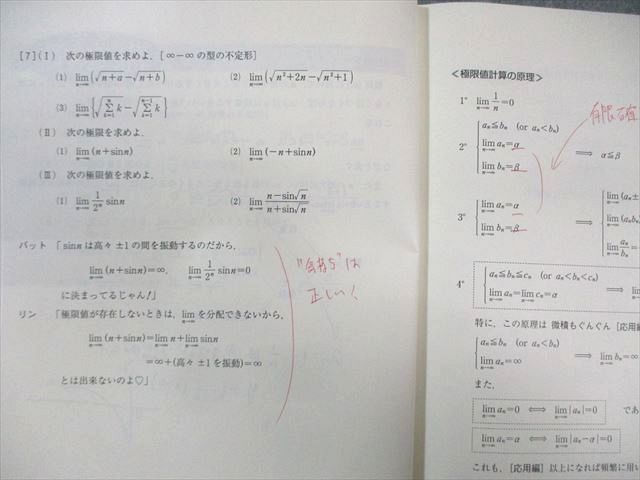 [7](Ⅰ) 次の極限値を求めよ. [∞−∞の型の不定形]
(1) lim_{n→∞}(√(n+a)−√(n+b)) (2) lim_{n→∞}(√(n²+2n)−√(n²+1))
(3) lim_{n→∞}{√(Σ_{k=1}^{n}k)−√(Σ_{k=1}^{n−1}k)}
(Ⅱ) 次の極限を求めよ.
(1) lim_{n→∞}(n+sin n) (2) lim_{n→∞}(−n+sin n)
(Ⅲ) 次の極限値を求めよ.
(1) lim_{n→∞} 1/2ⁿ sin n (2) lim_{n→∞} (n−sin√n)/(n+sin√n)
バット 「sin n は高々 ±1 の間を振動するのだから,
lim_{n→∞}(n+sin n)=∞, lim_{n→∞} 1/2ⁿ sin n=0
に決まってるじゃん!」
リン 「極限値が存在しないときは, lim_{n→∞} を分配できないから,
lim_{n→∞}(n+sin n)=lim_{n→∞} n+lim_{n→∞} sin n
=∞+(高々 ±1 を振動)=∞
とは出来ないのよ♡」
"気持ち"は
正しい!
<極限値計算の原理>
1° lim_{n→∞} 1/n=0
有限確
2° { aₙ≦bₙ (or aₙ<bₙ)
lim_{n→∞} aₙ=α
lim_{n→∞} bₙ=β
⟹ α≦β
3° { lim_{n→∞} aₙ=α
lim_{n→∞} bₙ=β
⟹ { lim_{n→∞}(aₙ±
lim_{n→∞}(aₙb
lim_{n→∞} aₙ/bₙ=
4° { aₙ≦bₙ≦cₙ (or aₙ<bₙ<cₙ)
lim_{n→∞} aₙ=lim_{n→∞} cₙ=α
⟹
特に, この原理は 微積もぐんぐん [応用編]
{ aₙ≦bₙ (or aₙ<bₙ)
lim_{n→∞} aₙ=∞
⟹ lim_{n→∞} bₙ=∞
また,
lim_{n→∞} aₙ=0 ⟺ lim_{n→∞}|aₙ|=0 であ
lim_{n→∞} aₙ=α ⟺ lim_{n→∞}|aₙ−α|=0
これも, [応用編] 以上になれば頻繁に用い